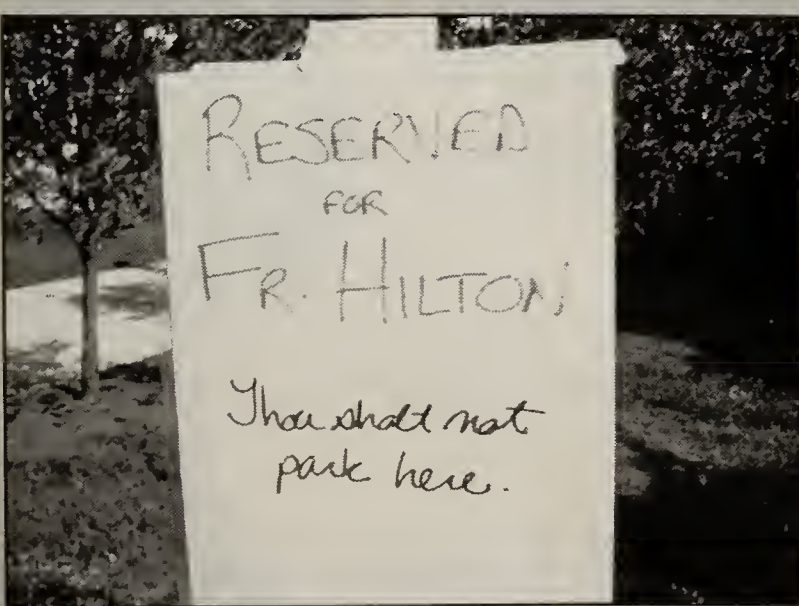 RESERVED
FOR
FR. HILTON
Thou shalt not
park here.